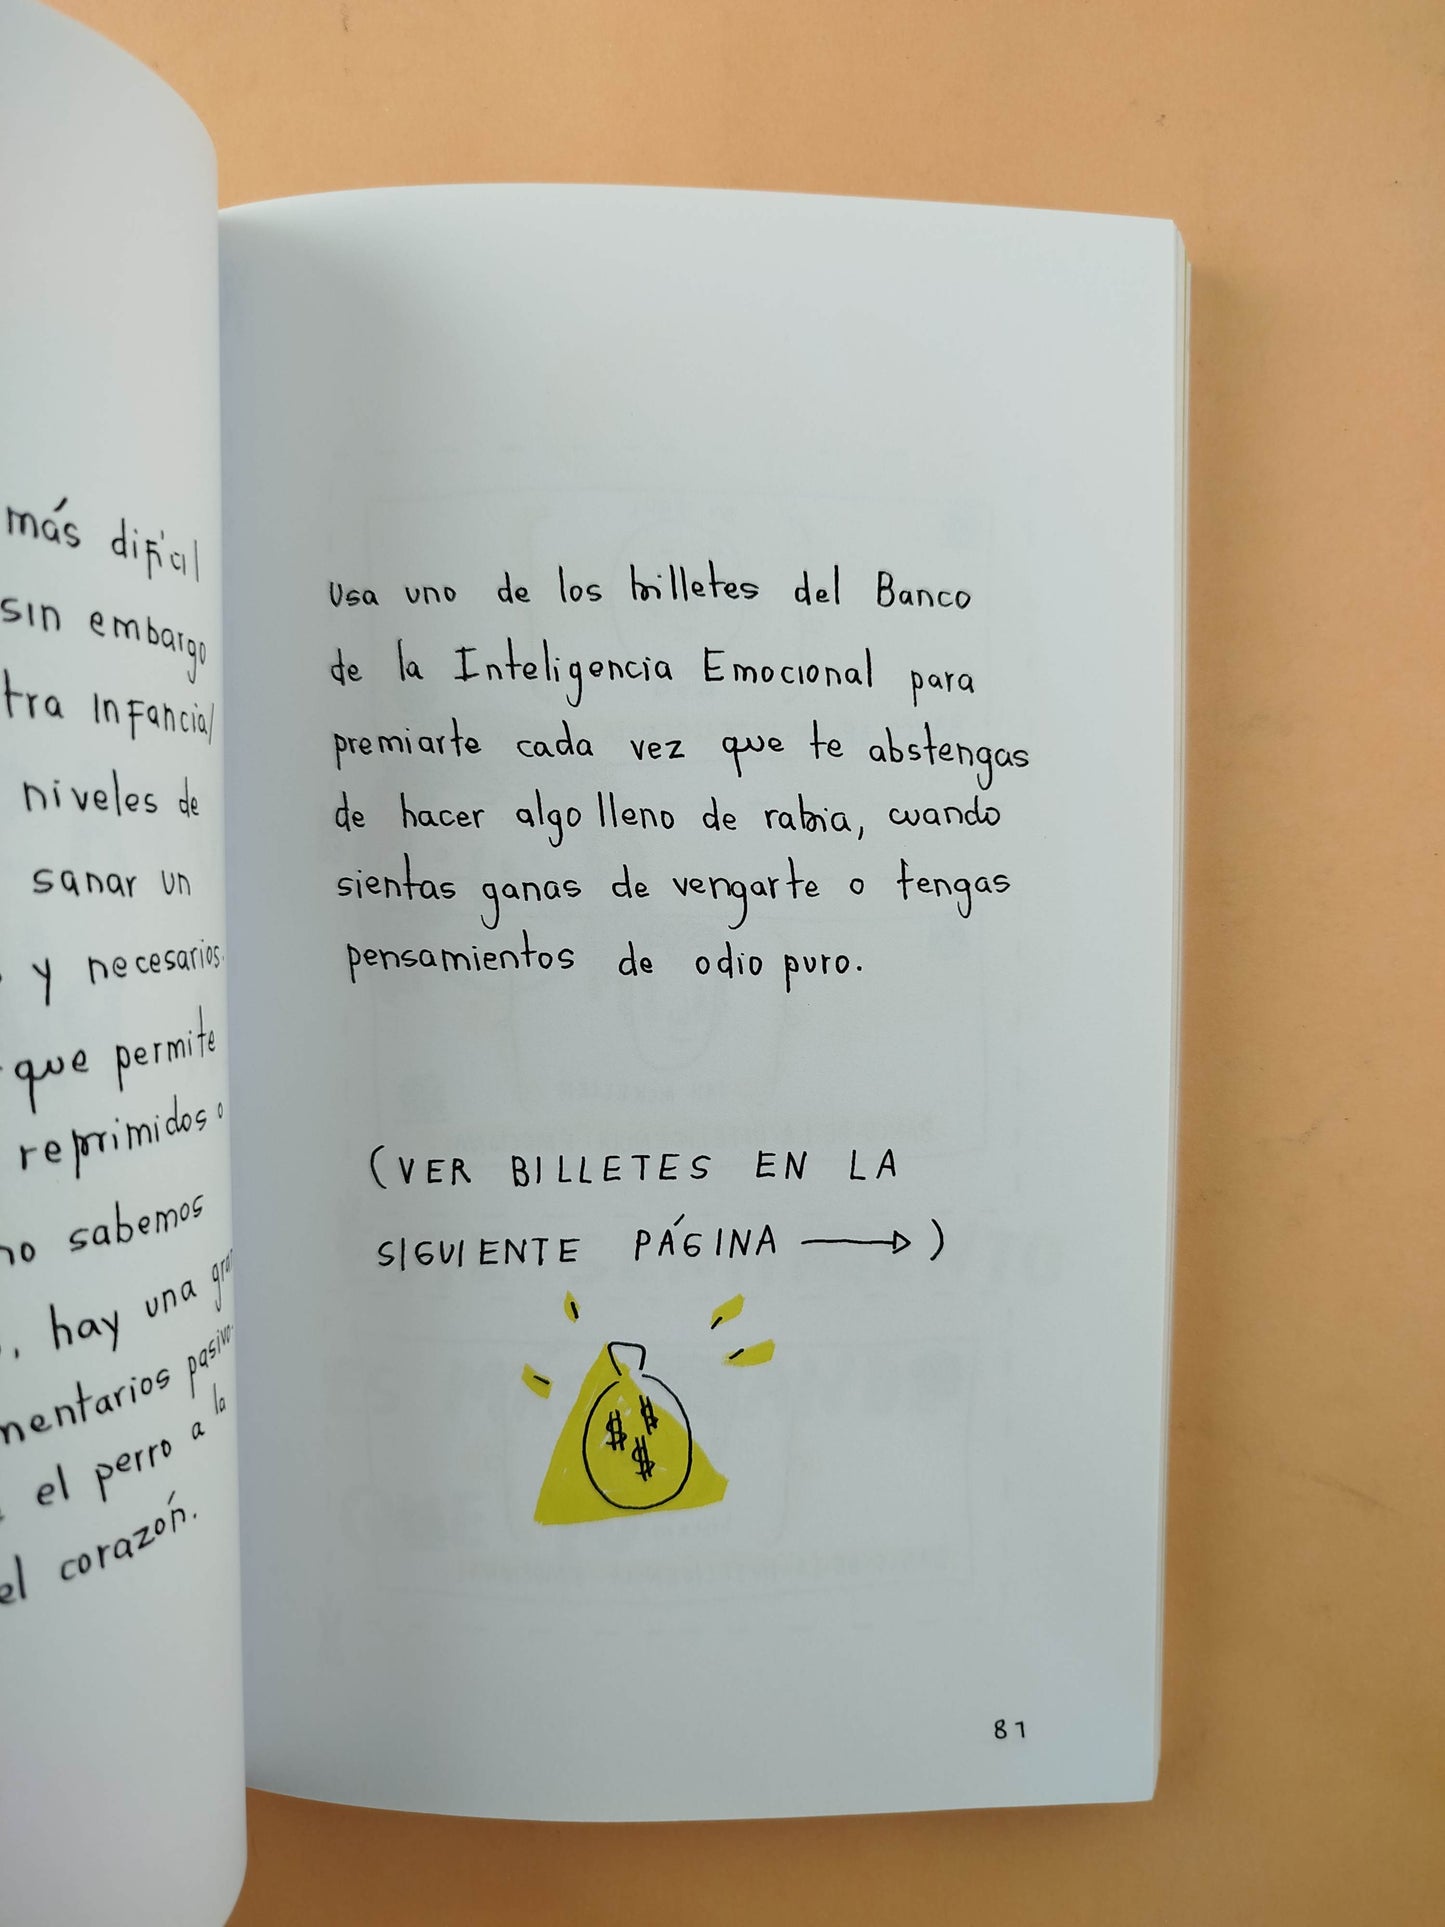 más difícil
sin embargo
tra infancial
niveles de
sanar un
y necesarios.
que permite
reprimidos o
no sabemos
, hay una gran
mentarios pasivo-
el perro a la
el corazón.
Usa uno de los billetes del Banco
de la Inteligencia Emocional para
premiarte cada vez que te abstengas
de hacer algo lleno de rabia, cuando
sientas ganas de vengarte o tengas
pensamientos de odio puro.
(VER BILLETES EN LA
SIGUIENTE PÁGINA →)
$ $ $
81